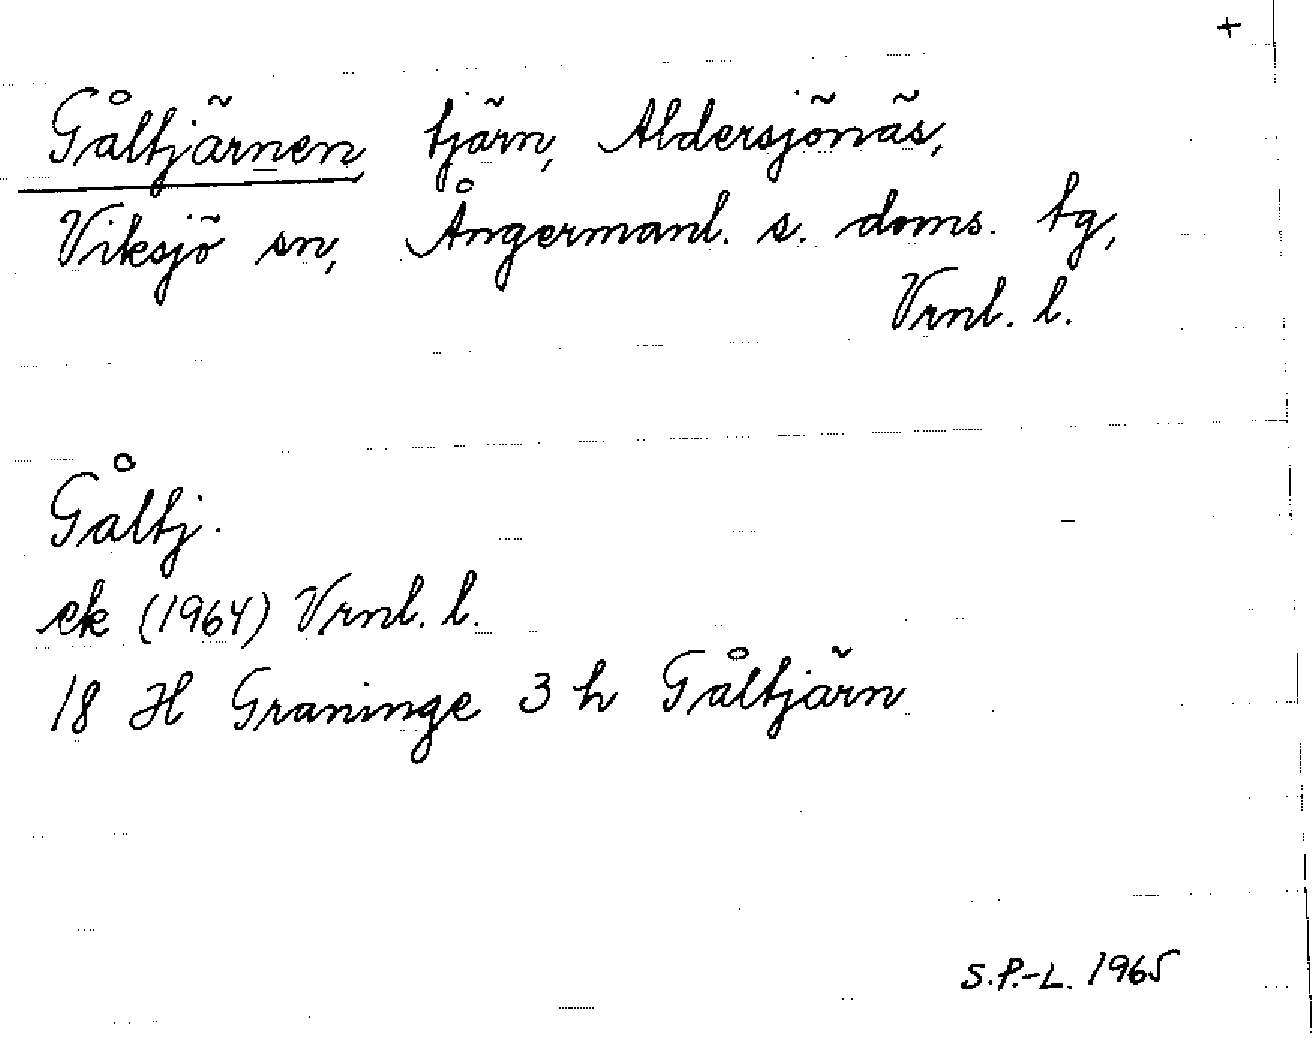 +
Gåltjärnen, tjärn, Aldersjönäs,
Viksjö sn, Ångermanl. s. doms. tg,
Vrnl. l.
Gåltj.
ek (1964) Vrnl. l.
18 H Graninge 3 h Gåltjärn
S.P.-L. 1965